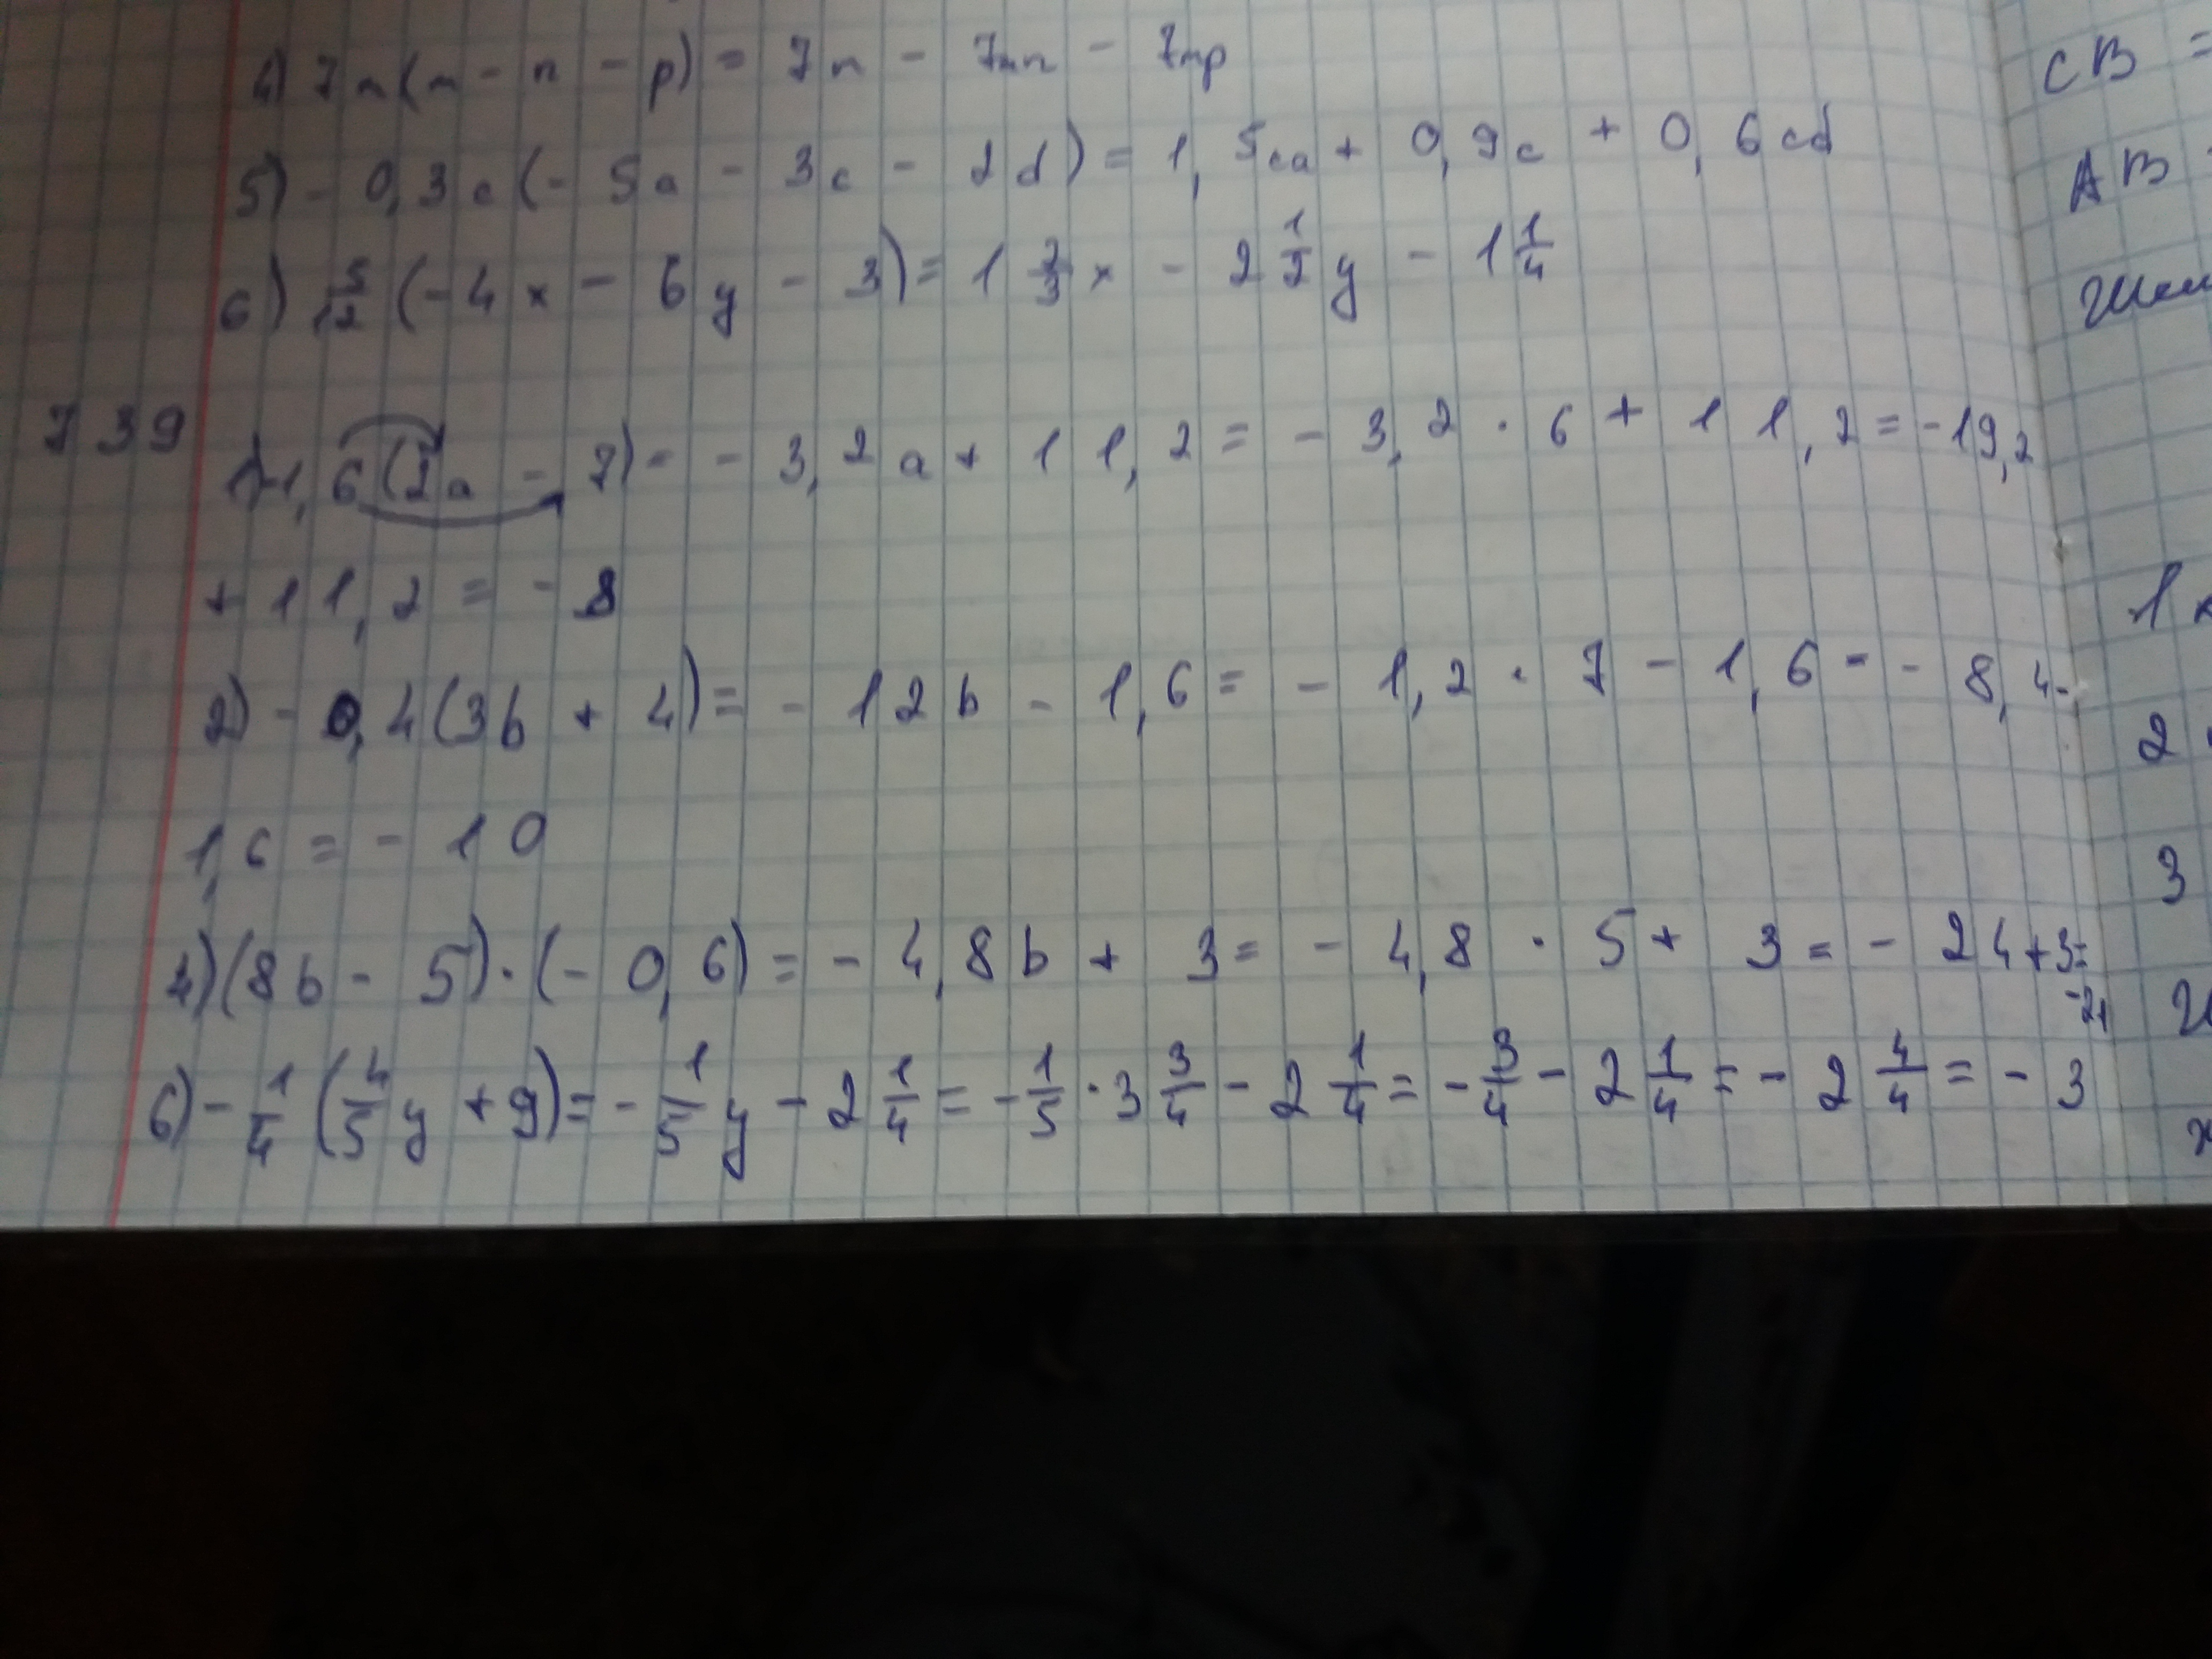 4) 7m(m - n - p) = 7m - 7mn - 7mp
5) - 0,3c(- 5a - 3c - 2d) = 1,5ca + 0,9c + 0,6cd
6) 5/12 (- 4x - 6y - 3) = 1 2/3 x - 2 1/2 y - 1 1/4
739
1) -1,6(2a - 7) = - 3,2a + 11,2 = - 3,2 · 6 + 11,2 = -19,2
+ 11,2 = - 8
2) - 0,4(3b + 4) = - 12b - 1,6 = - 1,2 · 7 - 1,6 = - 8,4 -
1,6 = - 10
4) (8b - 5) · (- 0,6) = - 4,8b + 3 = - 4,8 · 5 + 3 = - 24 + 3 =
-21
6) - 1/4 (4/5 y + 9) = - 1/5 y - 2 1/4 = - 1/5 · 3 3/4 - 2 1/4 = - 3/4 - 2 1/4 = - 2 4/4 = - 3
CB =
AB
1
2
3